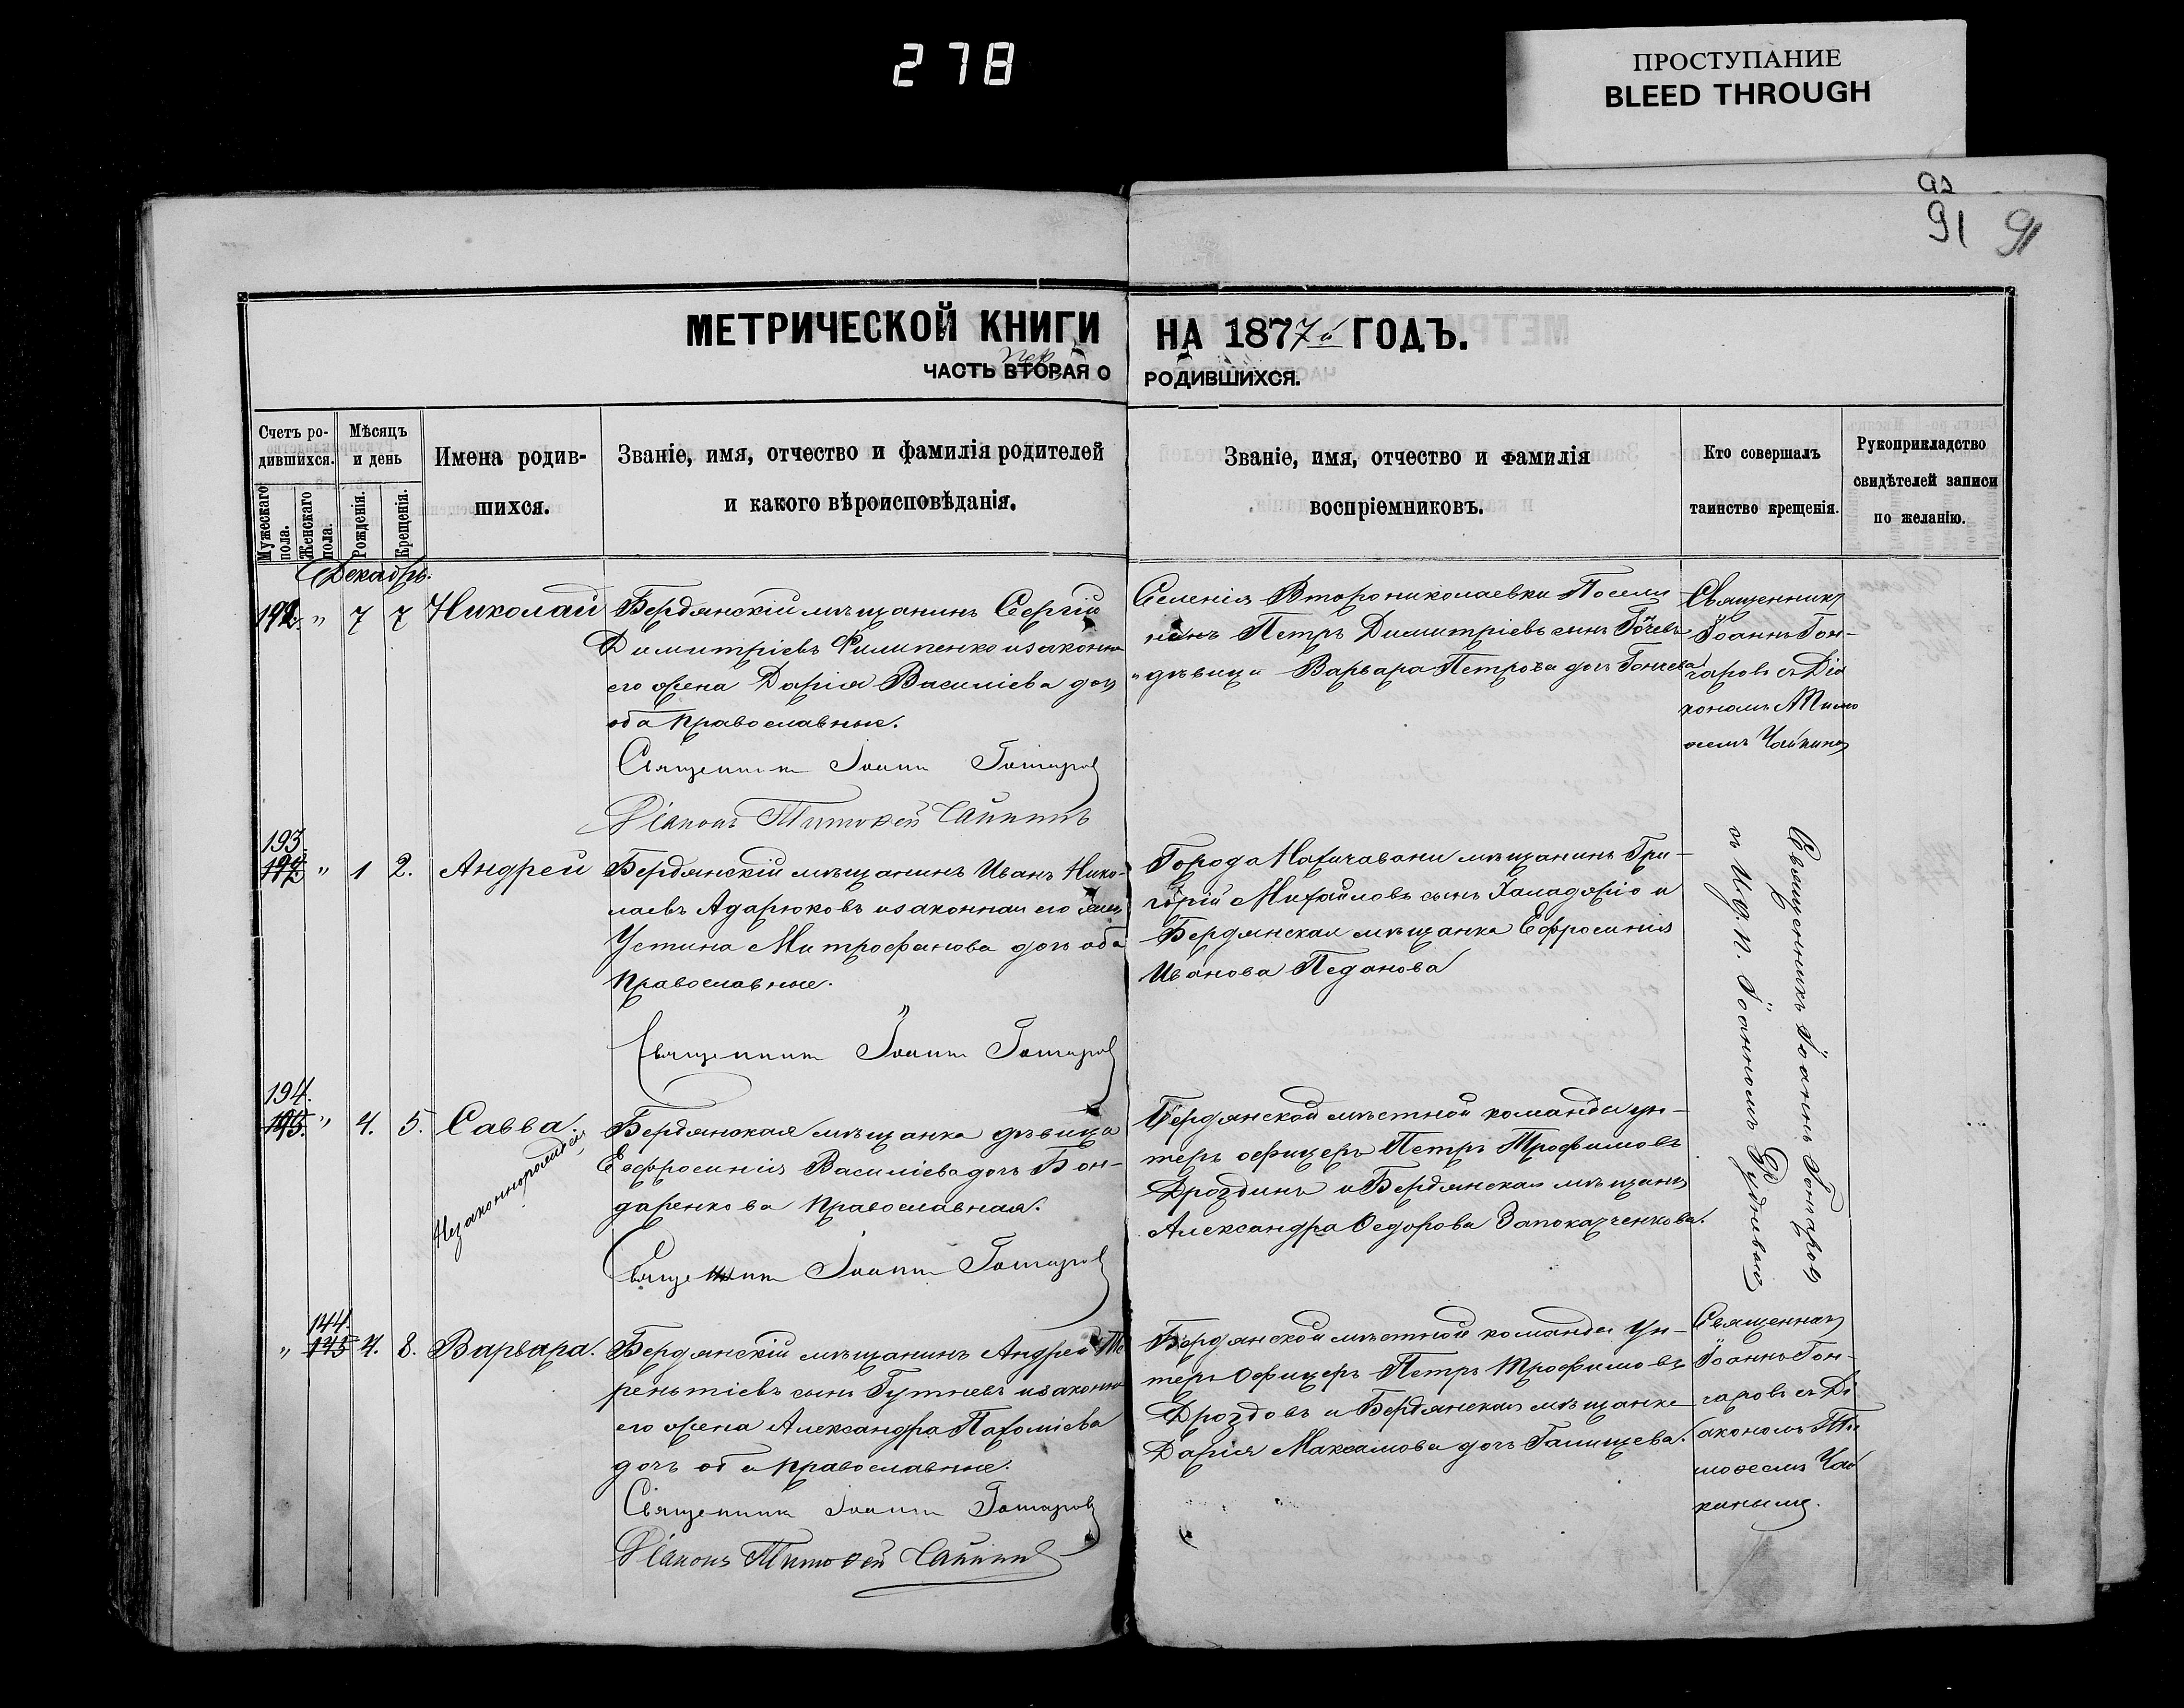 278
ПРОСТУПАНИЕ
BLEED THROUGH
91 91
МЕТРИЧЕСКОЙ КНИГИ НА 1877й ГОДЪ.
ЧАСТЬ ВТОРАЯ пер О РОДИВШИХСЯ.
Счетъ ро-
дившихся.
Мужескаго пола.
Женскаго пола.
Мѣсяцъ
и день
Рожденія.
Крещенія.
Имена родив-
шихся.
Званіе, имя, отчество и фамилія родителей
и какого вѣроисповѣданія.
Званіе, имя, отчество и фамилія
воспріемниковъ.
Кто совершалъ
таинство крещенія.
Рукоприкладство
свидѣтелей записи
по желанію.
Декабрь.
192. " 7 7 Николай
Бердянскій мѣщанинъ Сергій
Димитріевъ Филипенко изаконна
его жена Дарія Василіева доч
оба православные.
Священникъ Іоаннъ Гончаров
Діаконъ Тимоѳей Чайкинъ
Селенія Второниколаевки Посели
нинъ Петръ Димитріевъ сынъ
и дѣвица Варвара Петрова доч Гончева
Священникъ
Іоаннъ Гон-
чаровъ съ Діа
кономъ Тимо
ѳеемъ Чайкинъ
193.
192 " 1 2. Андрей
Бердянскій мѣщанинъ Иванъ Нико-
лаевъ Адарюковъ изаконная его жен
Устина Митрофанова доч оба
православные.
Священникъ Іоаннъ Гончаров
Города Нахичавани мѣщанинъ Гри-
горій Михайловъ сынъ Халаджіо и
Бердянская мѣщанка Ефросинія
Иванова Педанова
Священникъ Іоаннъ Гончаров
съ И.д.п. Іоанномъ
194.
193. " 4. 5. Савва
Незаконнорожден
Бердянская мѣщанка дѣвица
Евфросинія Василіева доч Бон-
даренкова православная.
Священникъ Іоаннъ Гончаров
Бердянской мѣстной команды ун-
теръ офицеръ Петръ Трофимовъ
Дроздинъ и Бердянская мѣщанк
Александра Ѳедорова
144.
" 145 4. 8. Варвара.
Бердянскій мѣщанинъ Андрей Те
рентіевъ сынъ Гутневъ изаконн
его жена Александра Пахоміева
доч оба православные.
Священникъ Іоаннъ Гончаровъ
Діаконъ Тимоѳей Чайкинъ
Бердянской мѣстной команды Ун-
теръ Офицеръ Петръ Трофимовъ
Дроздовъ и Бердянская мѣщанка
Дарія Максимова доч Галищева.
Священник
Іоаннъ Гон-
чаровъ съ Ді
акономъ Ти
моѳеемъ Чай
кинымъ.